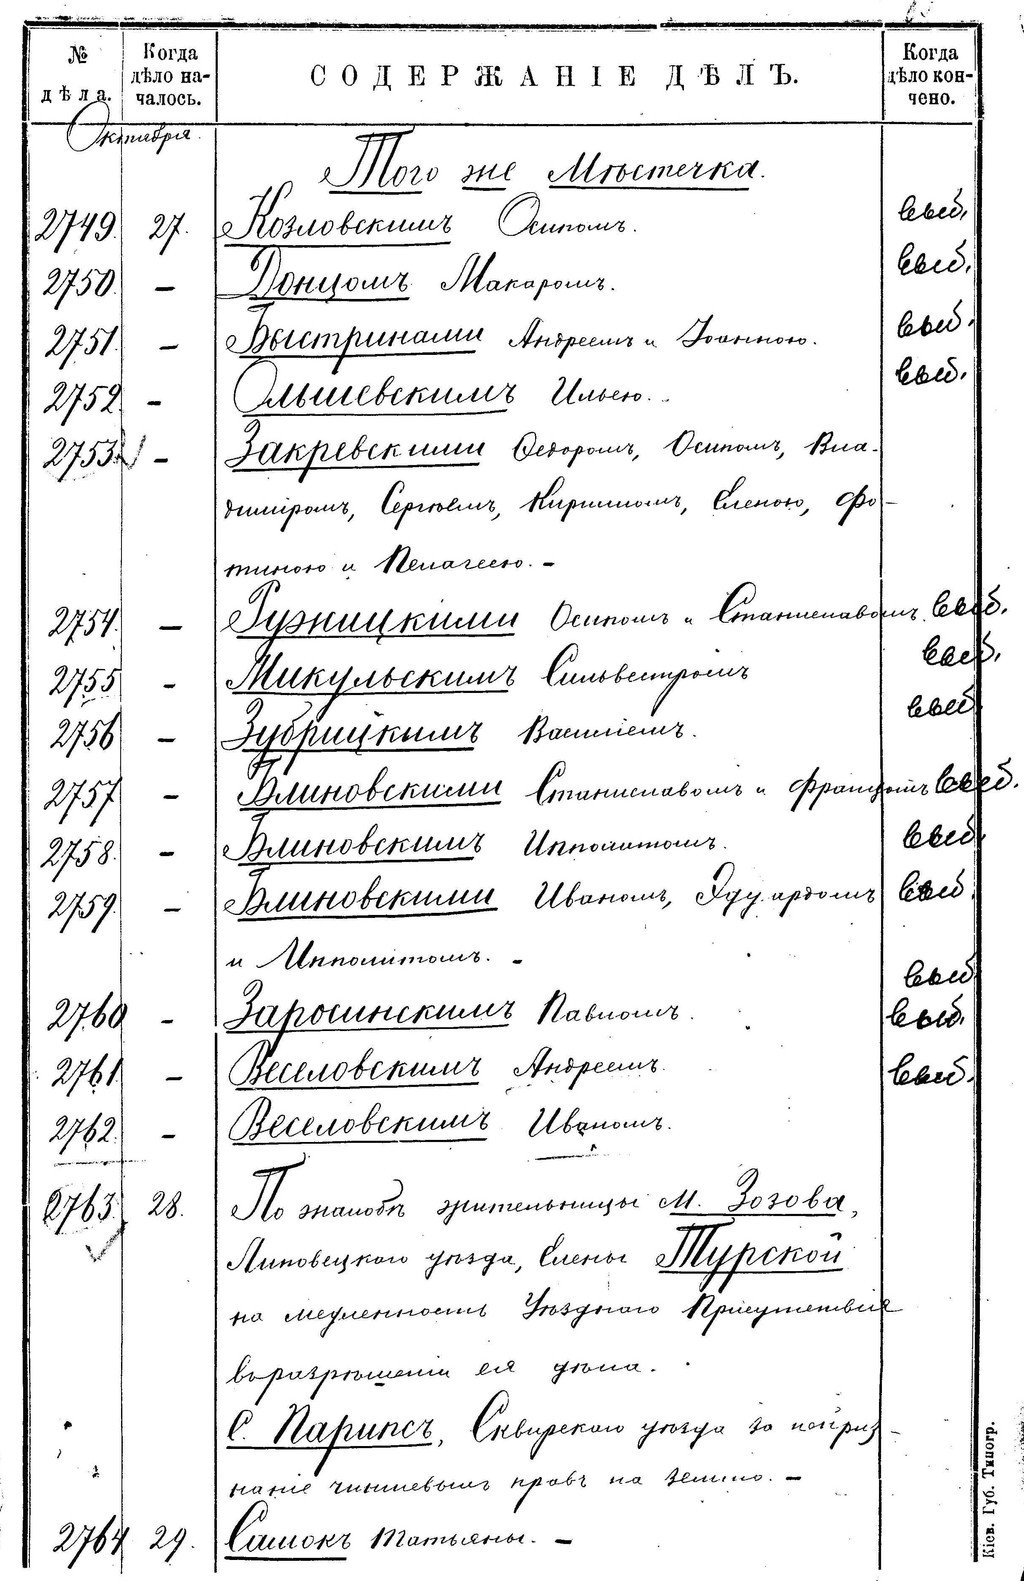 № дѣла. Когда дѣло началось. СОДЕРЖАНІЕ ДѢЛЪ. Когда дѣло кончено.
Октября.
Того же Мѣстечка.
2749. 27. Козловскимъ Осипомъ.
2750. — Донцомъ Макаромъ.
2751. — Быстринами Андреемъ и Іоанною.
2752. — Ольшевскимъ Ильею.
2753. — Закревскими Ѳедоромъ, Осипомъ, Вла-
диміромъ, Сергѣемъ, Кириломъ, Еленою, Фо-
тиною и Пелагеею. —
2754. — Ружицкими Осипомъ и Станиславомъ
2755 — Микульскимъ Сильвестромъ
2756 — Зубрицкимъ Василіемъ.
2757 — Блиновскими Станиславомъ и Францомъ
2758. — Блиновскимъ Ипполитомъ.
2759. — Блиновскими Иваномъ, Эдуардомъ
и Ипполитомъ. —
2760 — Заросинскимъ Павломъ.
2761. — Веселовскимъ Андреемъ.
2762. — Веселовскимъ Иваномъ.
2763. 28. По жалобѣ жительницы М. Зозова,
Липовецкаго уѣзда, Елены Турской
на медленность Уѣзднаго Присутствія
въ разрѣшеніи ея дѣла.
С. Парипсъ, Сквирскаго уѣзда за неприз-
наніе чиншевыхъ правъ на землю. —
2764 29. Самокъ Татьяны. —
Кіев. Губ. Типогр.